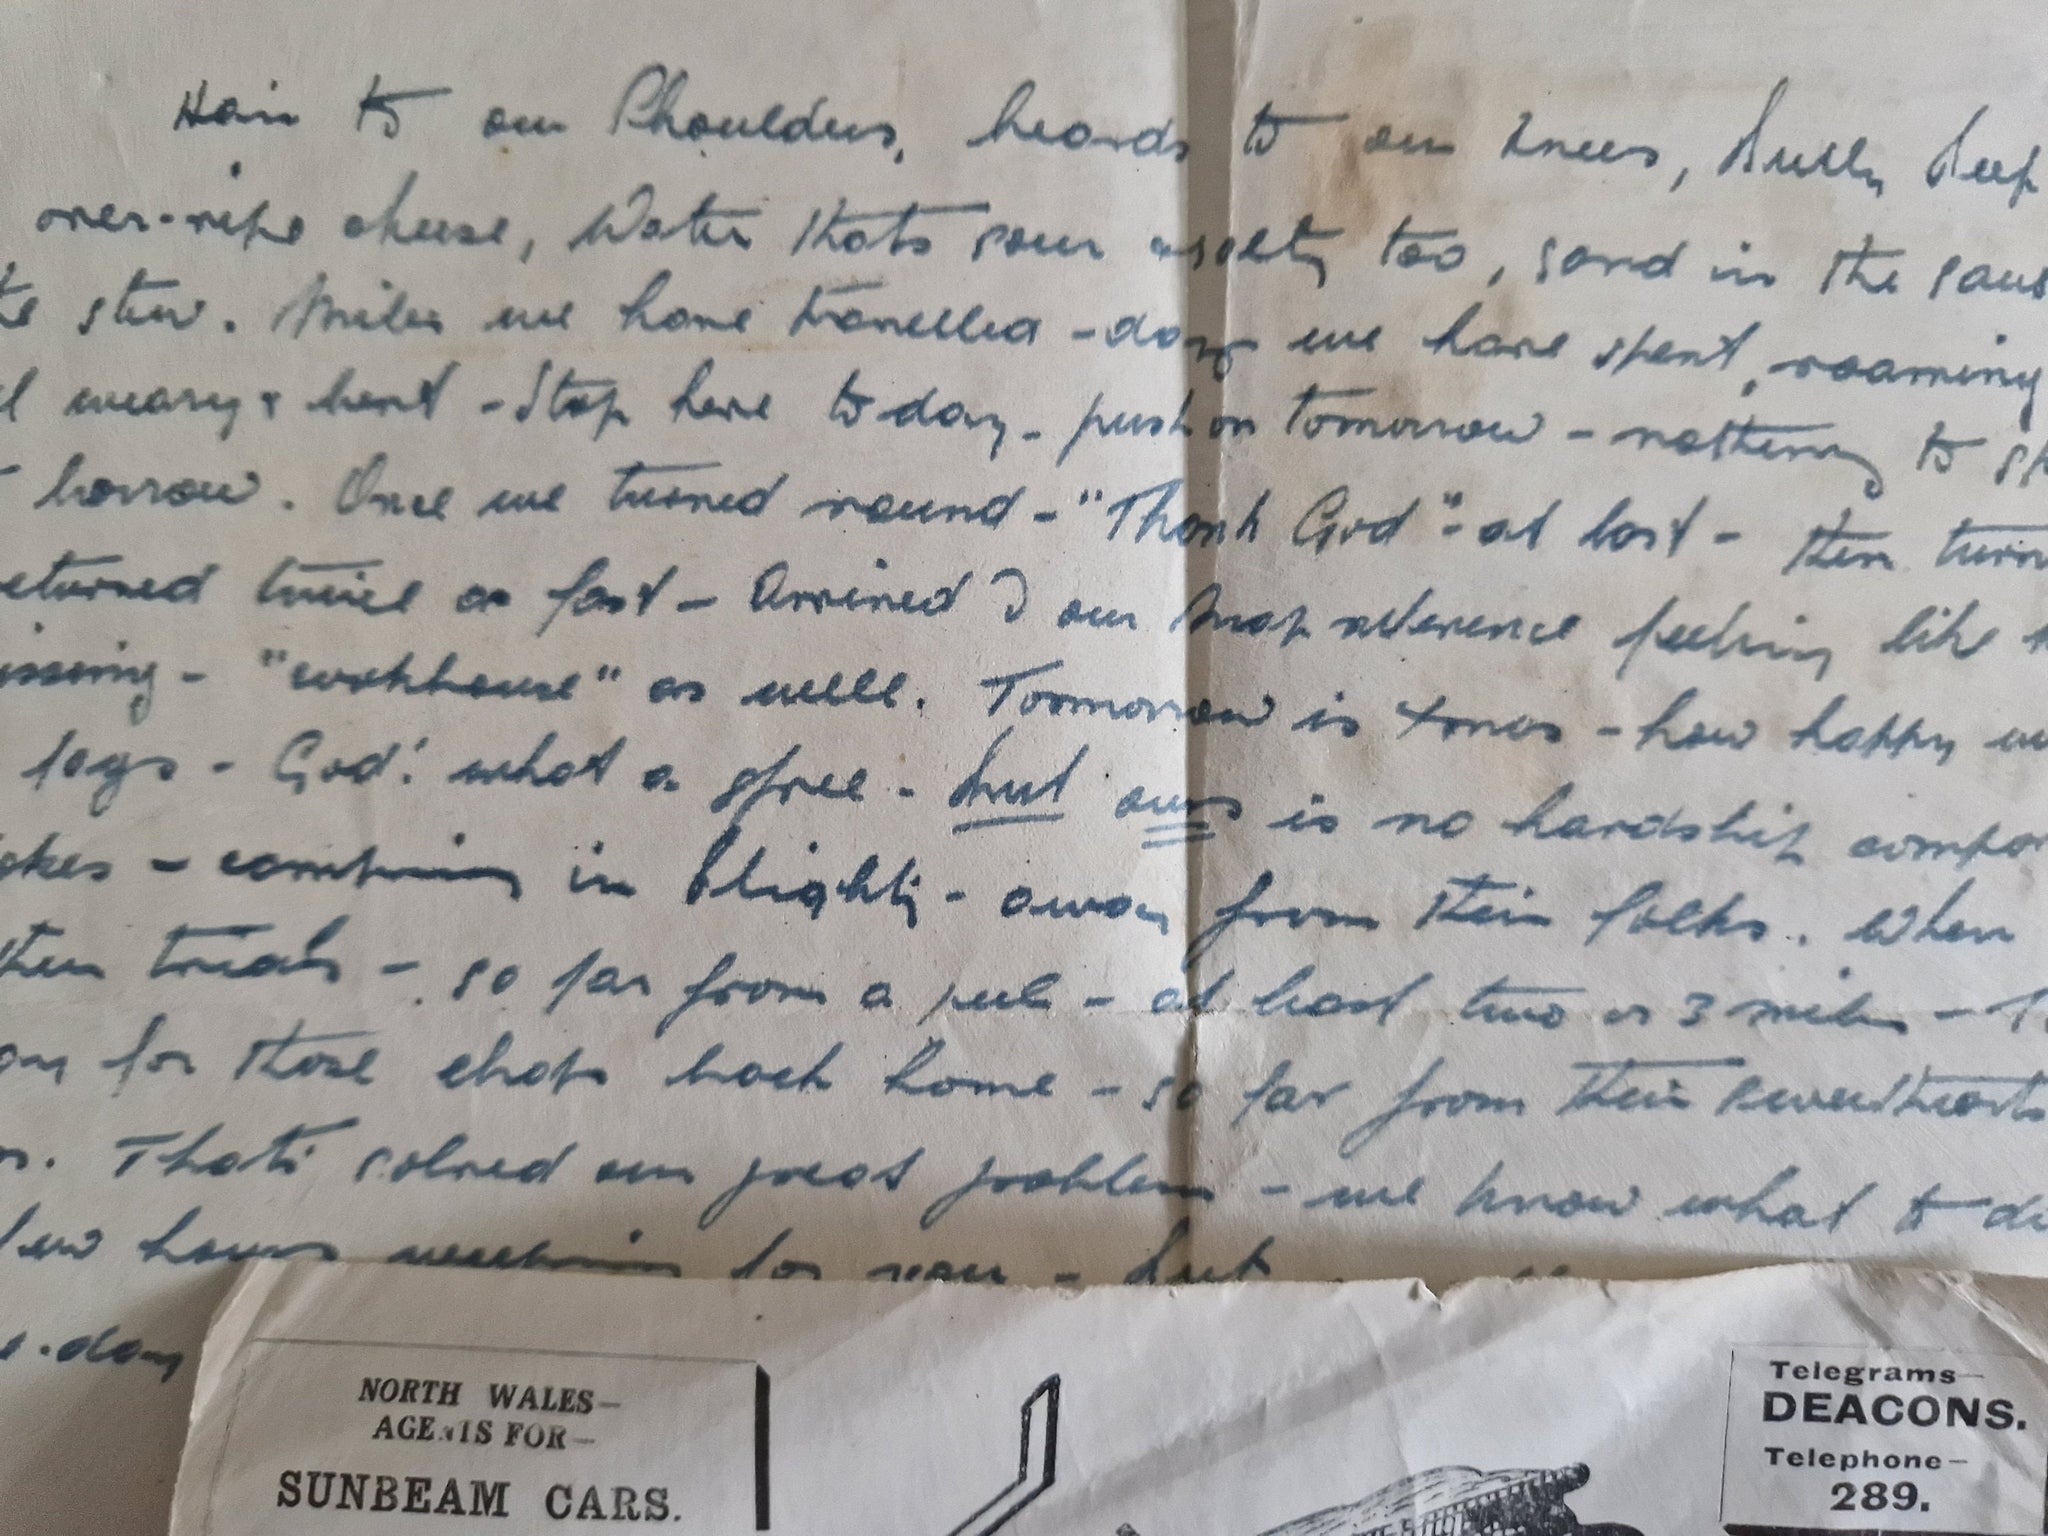 Hair to our shoulders, beards to our knees, Bully Beef
over-ripe cheese, Water thats sour & salty too, sand in the
stew. Miles we have travelled - days we have spent, roaming
weary & bent - Stop here today - push on tomorrow - nothing to
borrow. Once we turned round - "Thank God" - at last - then
returned twice as fast - Arrived @ our Map reference feeling like
"cookhouse" as well. Toomorrow is Xmas - how happy
fags - God! what a spree - but ours is no hardship
camping in Blighty - away from their folks. When
their trials - so far from a pub - at least two or 3 miles -
for those chaps back home - so far from their sweethearts
That's solved our great problem - we know what to
few hours for you - but
day
NORTH WALES-
AGENTS FOR-
SUNBEAM CARS.
Telegrams-
DEACONS.
Telephone-
289.